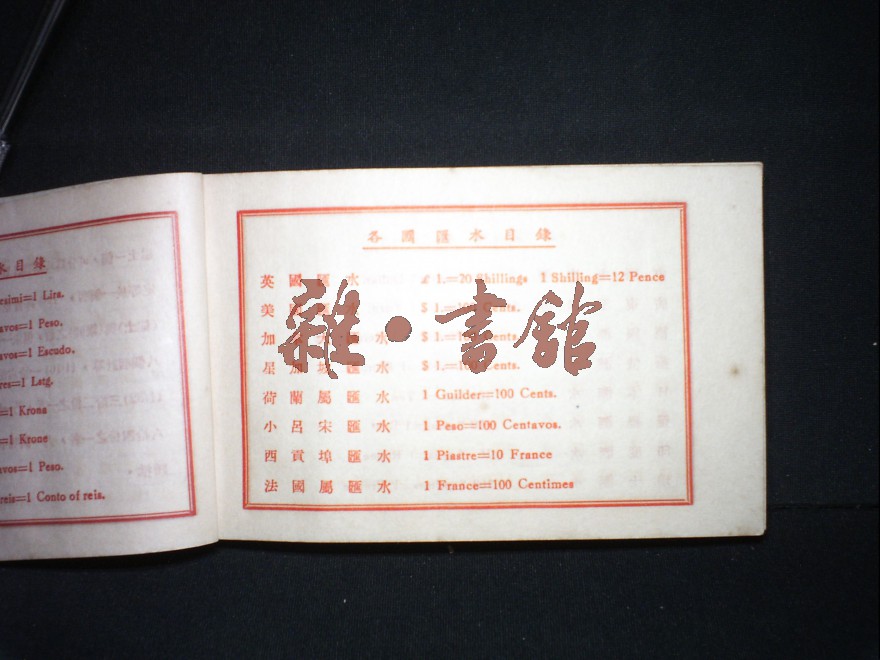 水目錄
esimi=1 Lira.
avos=1 Peso.
avos=1 Escudo.
res=1 Lstg.
=1 Krona
=1 Krone
avos=1 Peso.
reis=1 Conto of reis.
各國匯水目錄
英國匯水 £ 1.=20 Shillings 1 Shilling=12 Pence
美 $ 1.=100 Cents.
加 匯水 $ 1.=100 Cents.
星加坡匯水 $ 1.=100 Cents.
荷蘭屬匯水 1 Guilder=100 Cents.
小呂宋匯水 1 Peso=100 Centavos.
西貢埠匯水 1 Piastre=10 France
法國屬匯水 1 France=100 Centimes
雜·書館